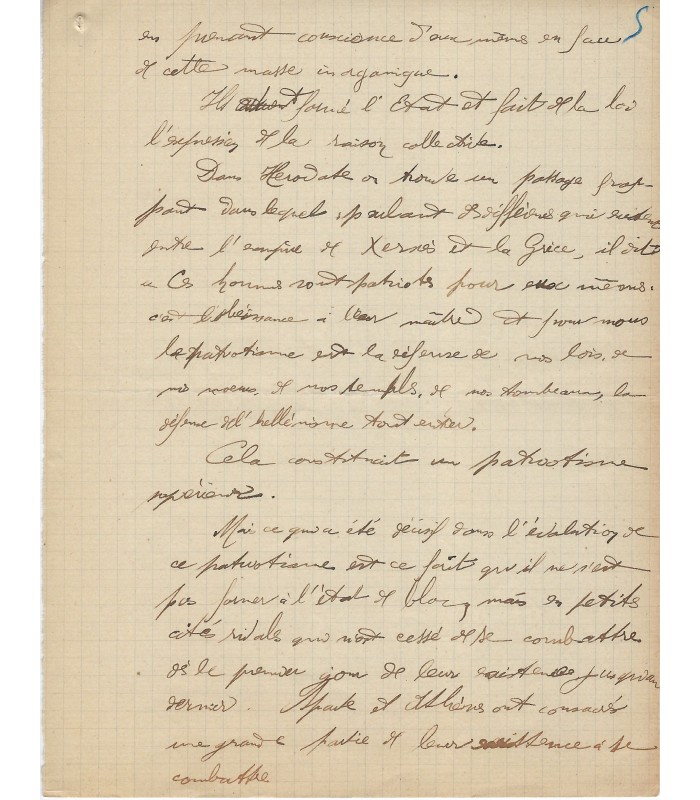 5
en prenant conscience d'eux mêmes en face
de cette masse inorganique.
Ils formé l'Etat et fait de la loi
l'expression de la raison collective.
Dans Herodote on trouve un passage frap-
pant dans lequel, parlant des différences qui existent
entre l'empire de Xerxès et la Grèce, il dit
" Ces hommes sont patriots pour eux mêmes.
c'est l'obéissance à leur maître et pour nous
le patriotisme est la défense de nos lois, de
nos moeurs, de nos temples, de nos tombeaux, la
défense de l'hellénisme tout entier.
Cela constituait un patriotisme
supérieur.
Mais ce qui a été décisif dans l'évolution de
ce patriotisme est ce fait qu'il ne s'est
pas former à l'état de bloc, mais en petits
cités rivales qui n'ont cessé de se combattre
dès le premier jour de leur existence jusqu'au
dernier. Sparte et Athènes ont consacrés
une grande partie de leur existence à se
combattre